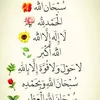 سُبْحَانَ اللَّه
الْحَمْدُ لِلَّه
لَا إِلَهَ إِلَّا اللَّه
اللَّهُ أَكْبَر
لَا حَوْلَ وَلَا قُوَّةَ إِلَّا بِاللَّه
سُبْحَانَ اللَّهِ وَبِحَمْدِهِ
سُبْحَانَ اللَّهِ الْعَظِيم